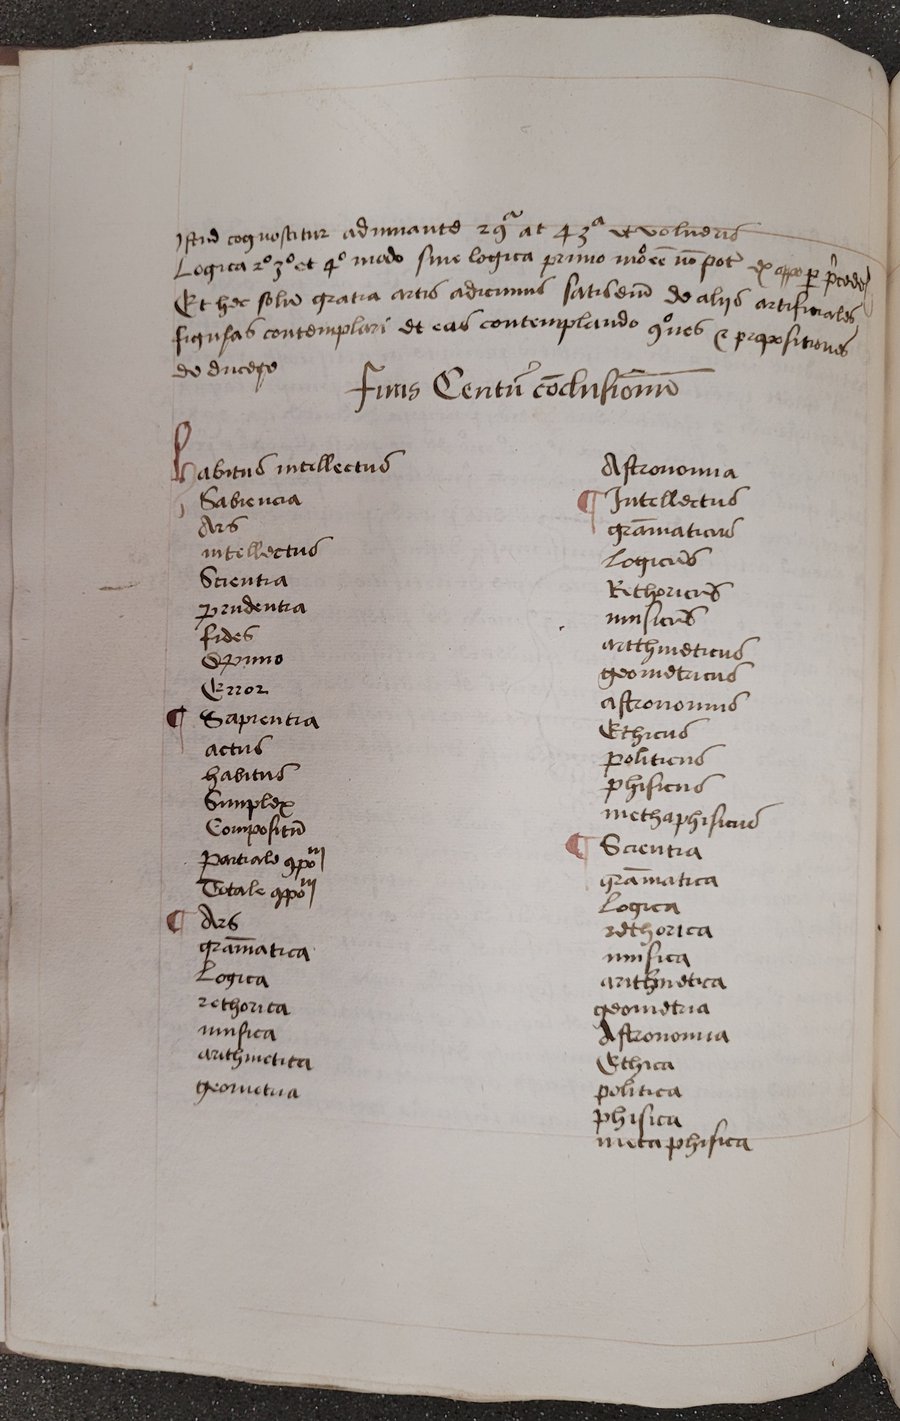 Istud cognoscitur adiuuante 29ª at 43ª et volueris
Logica 2º 3º et 4º modo sine logica primo mõ eē nō pot
Et hec solū gratia artis adicimus satis eni de alijs artificiales
figuras contemplari et eas contemplando 9ões et propositiones
deducere
Finis Centū cōclusionum
Habitus intellectus
Sabiencia
Ars
intellectus
Scientia
prudentia
fides
Opinio
Error
¶ Sapientia
actus
habitus
Simplex
Compositū
partiale 9po
Totale 9po
¶ Ars
grāmatica
Logica
rethorica
musica
arithmetica
geometria
Astronomia
¶ Intellectus
grāmaticus
Logicus
Rethoricus
musicus
arithmeticus
geometricus
astronomus
Ethicus
politicus
phisicus
methaphisicus
¶ Scientia
grāmatica
Logica
rethorica
musica
arithmetica
geometria
Astronomia
Ethica
politica
phisica
metaphisica